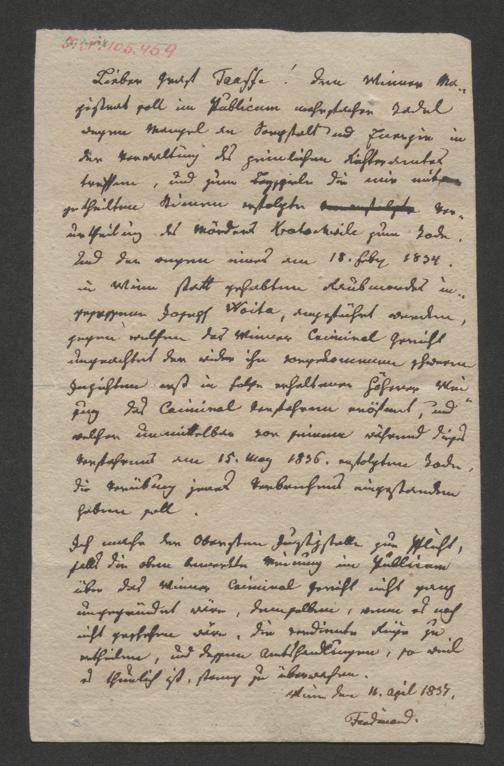 105.459
Lieber Graf Taaffe! Dem Wiener Ma-
gistrat soll im Publicum mehrfacher Tadel
wegen Mangel an Sorgfalt und Energie in
der Verwaltung des peinlichen Richteramtes
treffen, und zum Beyspiele die mir mit
getheilten Stimmen erfolgte Ver-
urtheilung des Mörders zum Tode,
und der wegen eines am 18. Feby 1834.
in Wien statt gehabten Raubmordes in-
gezogene Joseph Woita, angeführt werden,
gegen welchen das Wiener Criminal Gericht
ungeachtet der wider ihn vorgekommenen schweren
Inzichten erst in Folge erhaltener höherer Wei-
sung das Criminal Verfahren eröffnet, und
welcher unmittelbar vor seinem während dieses
Verfahrens am 15. May 1836. erfolgten Tode,
die Verübung jenes Verbrechens eingestanden
haben soll.
Ich mache der Obersten Justizstelle zur Pflicht,
falls die oben bemerkte Meinung im Publicum
über das Wiener Criminal Gericht nicht ganz
ungegründet wäre, demselben, wenn es noch
nicht geschehen wäre, die verdiente Rüge zu
ertheilen, und dessen Amtshandlungen, so viel
es thunlich ist, streng zu überwachen.
Wien den 16. April 1837.
Ferdinand.